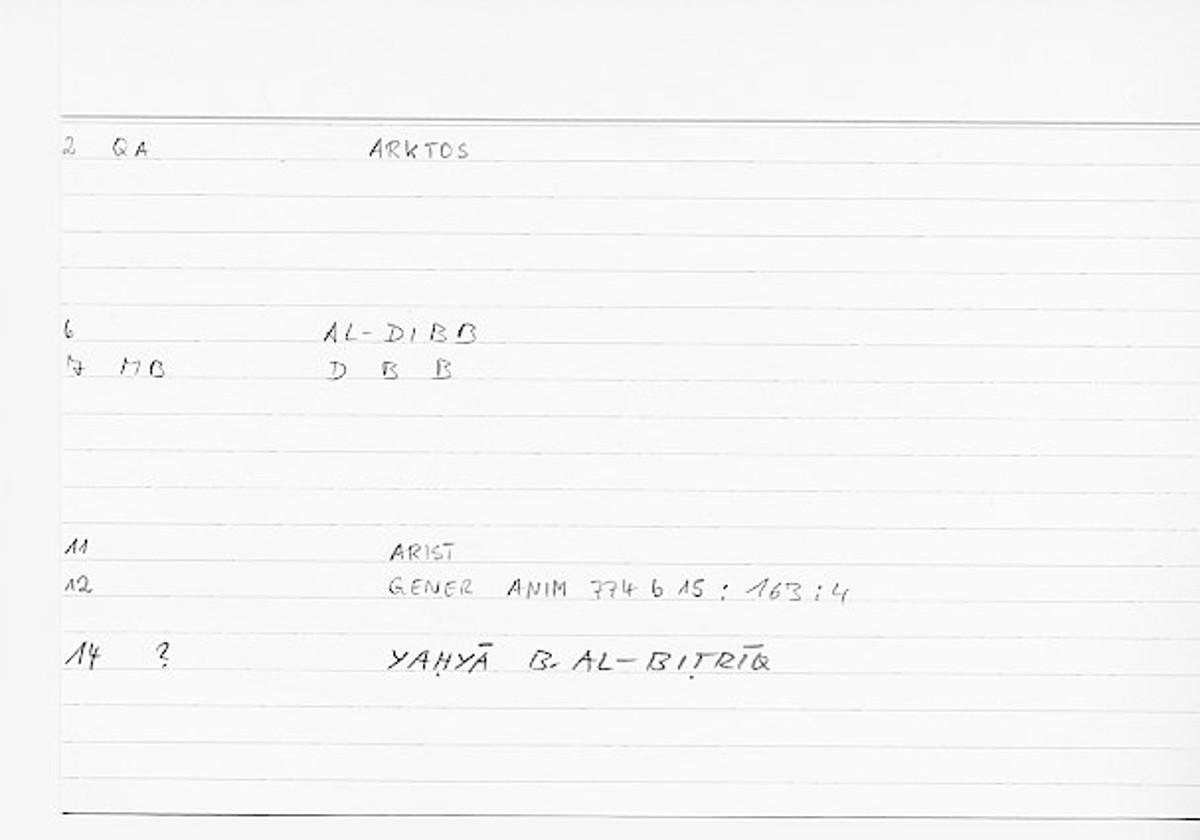 2 QA ARKTOS
6 AL-DIBB
7 MB D B B
11 ARIST
12 GENER ANIM 774 b 15 : 163 : 4
14 ? YAḤYĀ B. AL-BIṬRĪQ